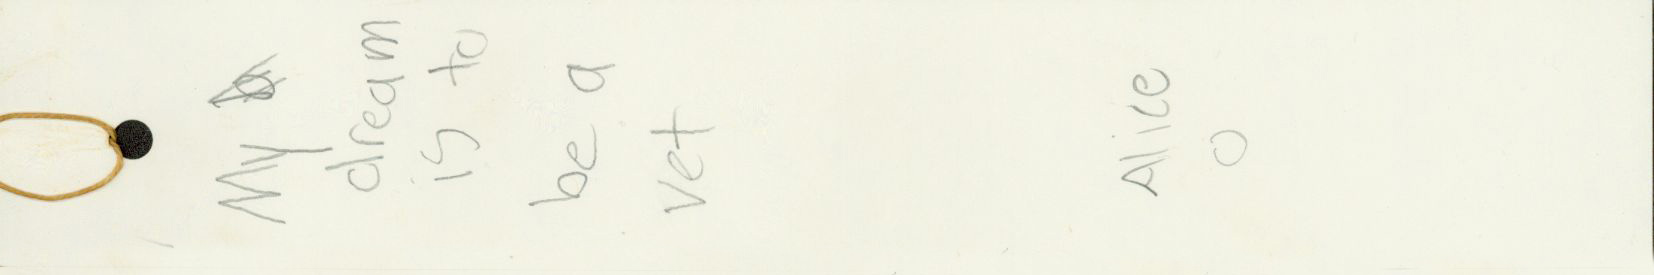 My
dream
is to
be a
vet
Alice
O